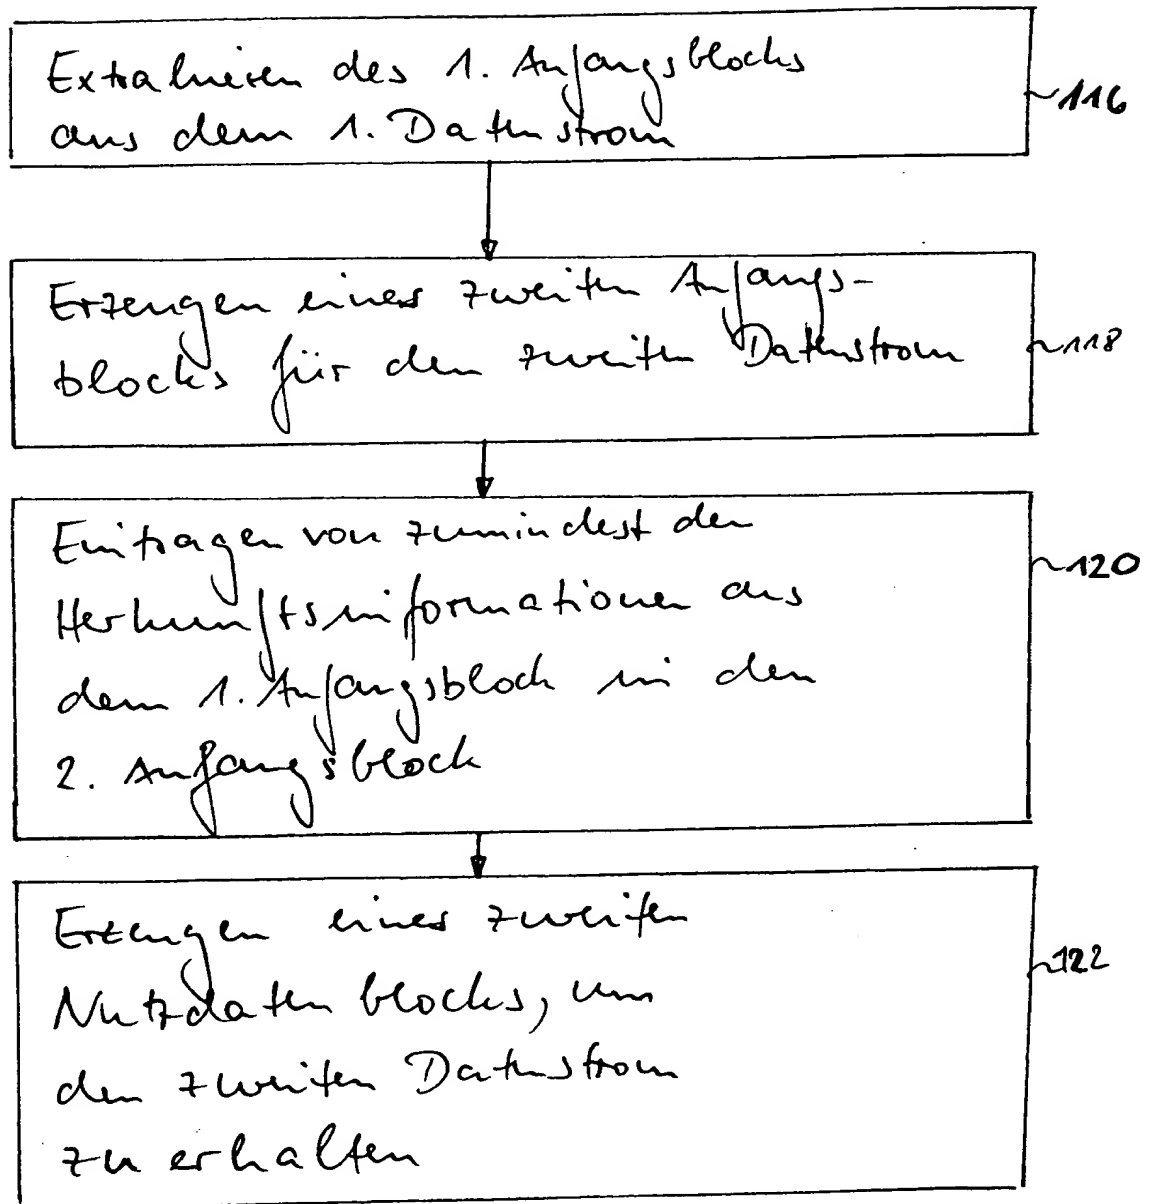 Extrahieren des 1. Anfangsblocks
aus dem 1. Datenstrom
116
Erzeugen eines zweiten Anfangs-
blocks für den zweiten Datenstrom
118
Eintragen von zumindest den
Herkunftsinformationen aus
dem 1. Anfangsblock in den
2. Anfangsblock
120
Erzeugen eines zweiten
Nutzdatenblocks, um
den zweiten Datenstrom
zu erhalten
122